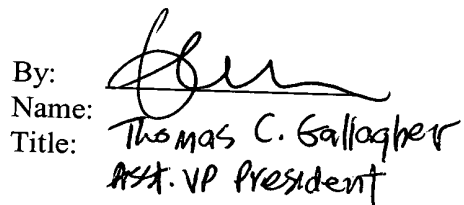 By:
Name: Thomas C. Gallagher
Title: Asst. VP President